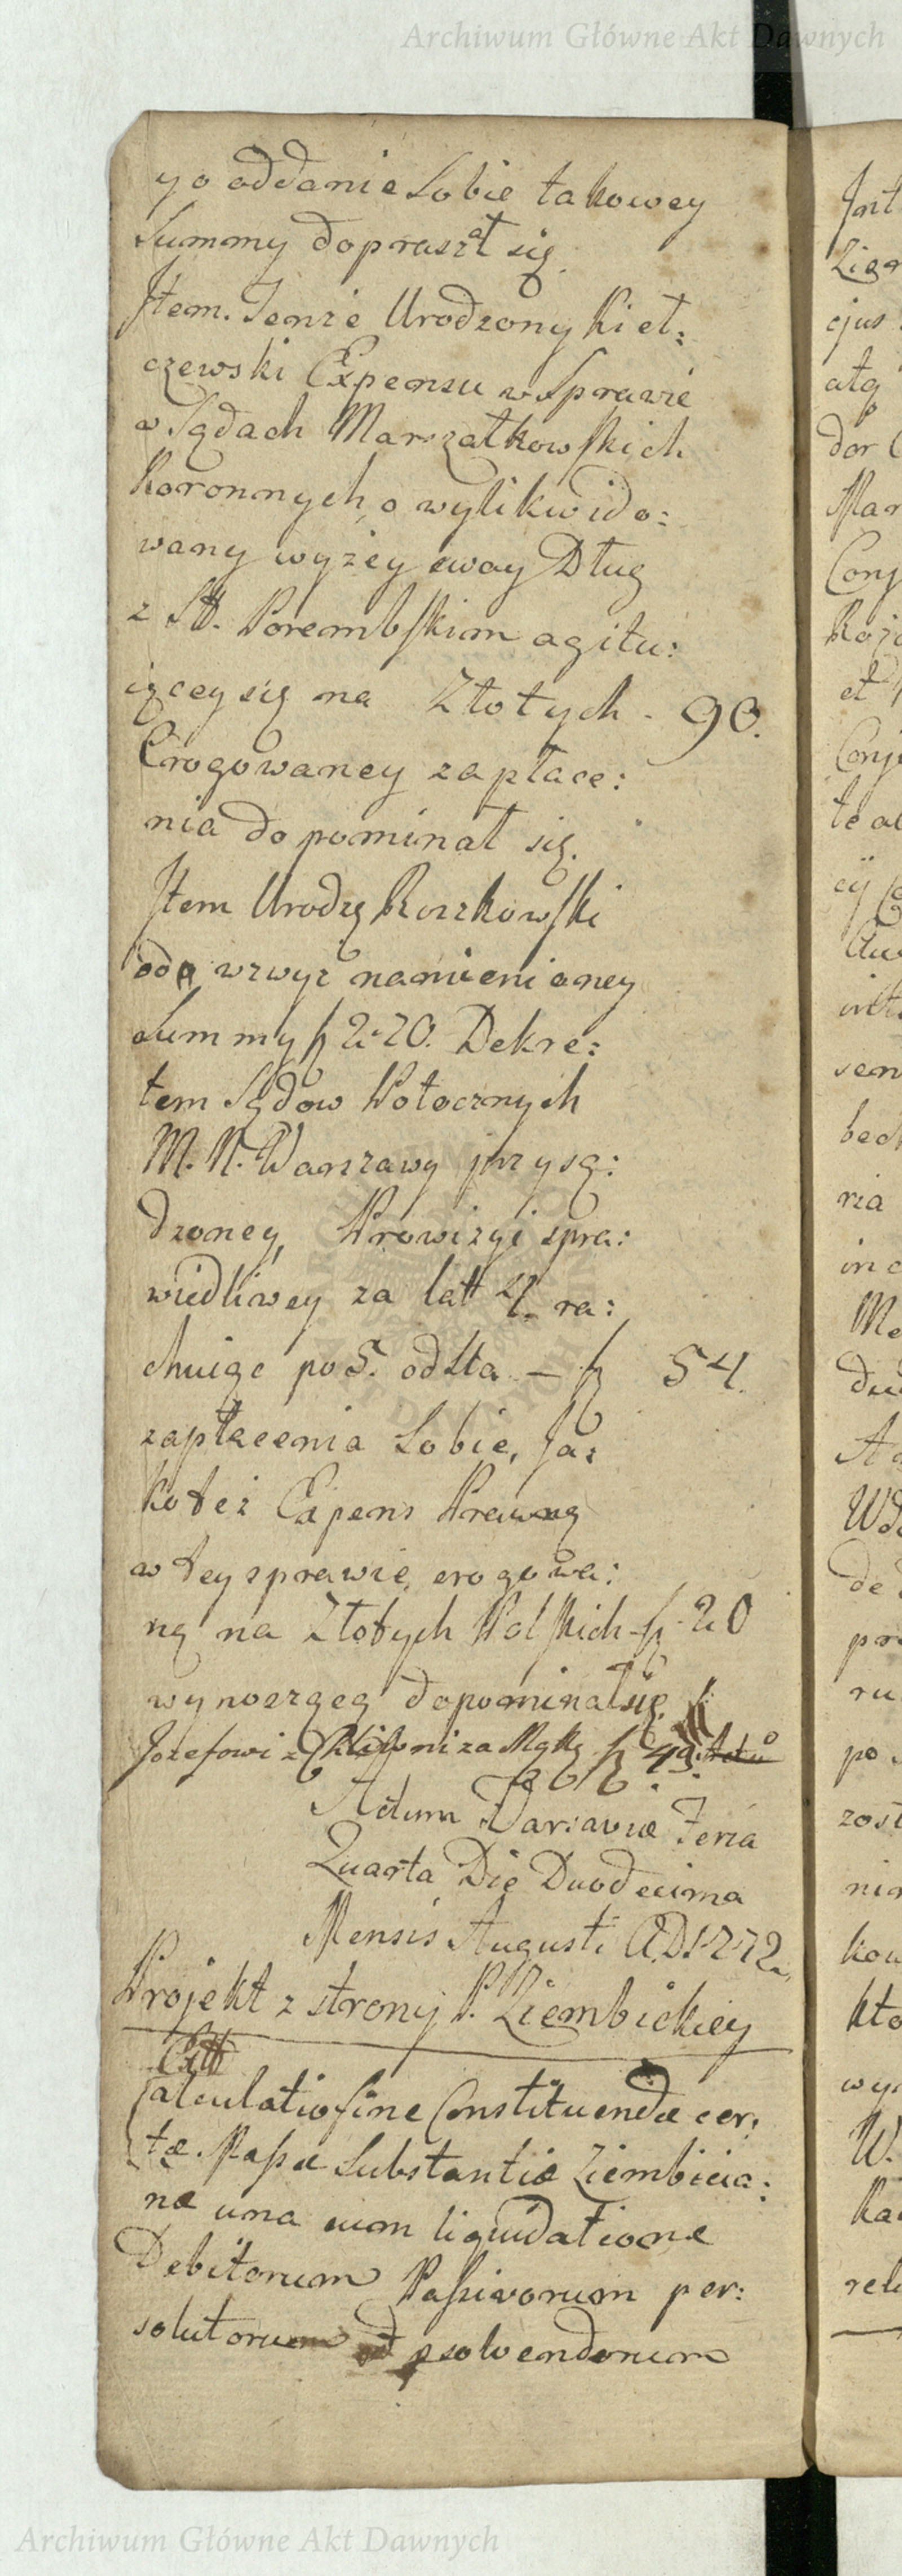 Archiwum Główne Akt Dawnych
y o oddanie Sobie takowey
Summy dopraszał się.
Jtem. Tenże Urodzony Kieł:
czewski Expensu w Sprawie
w Sądach Marszałkowskich
Koronnych, o wylikwido:
wany wyżey swoy Dług
z Porembskim agitu:
iącey się na Złotych - 90.
Erogowaney zapłace:
nia dopominał się.
Jtem Urodzo Roszkowski
od wzwyż namienioney
Summy 220. Dekre:
tem Sądow Potocznych
M. Warszawy przysą:
dzoney, Prowizyi spra:
wiedliwey za latt 4. ra:
chuiąc po 5. od Sta - 54.
zapłacenia Sobie, Ja:
koteż Expens Prawną
w tey sprawie, erogowa:
ną na Złotych Polskich 20
wynoszącą dopominał się.
Jozefowi z za Mąkę 49.
Actum Varsaviæ Feria
Quarta Die Duodecima
Mensis Augusti A.D. 1772.
Projekt z strony P. Ziembickiey
Calculatio fine Constituendæ cer:
tæ Massæ Substantiæ Ziembicia:
næ una cum liquidatione
Debitorum Passivorum per:
solutorum et psolvendorum
Jnt
cjus
dor
Conj
et
Conj
te
in
ria
po
zost
kow
kto
W.
Archiwum Główne Akt Dawnych